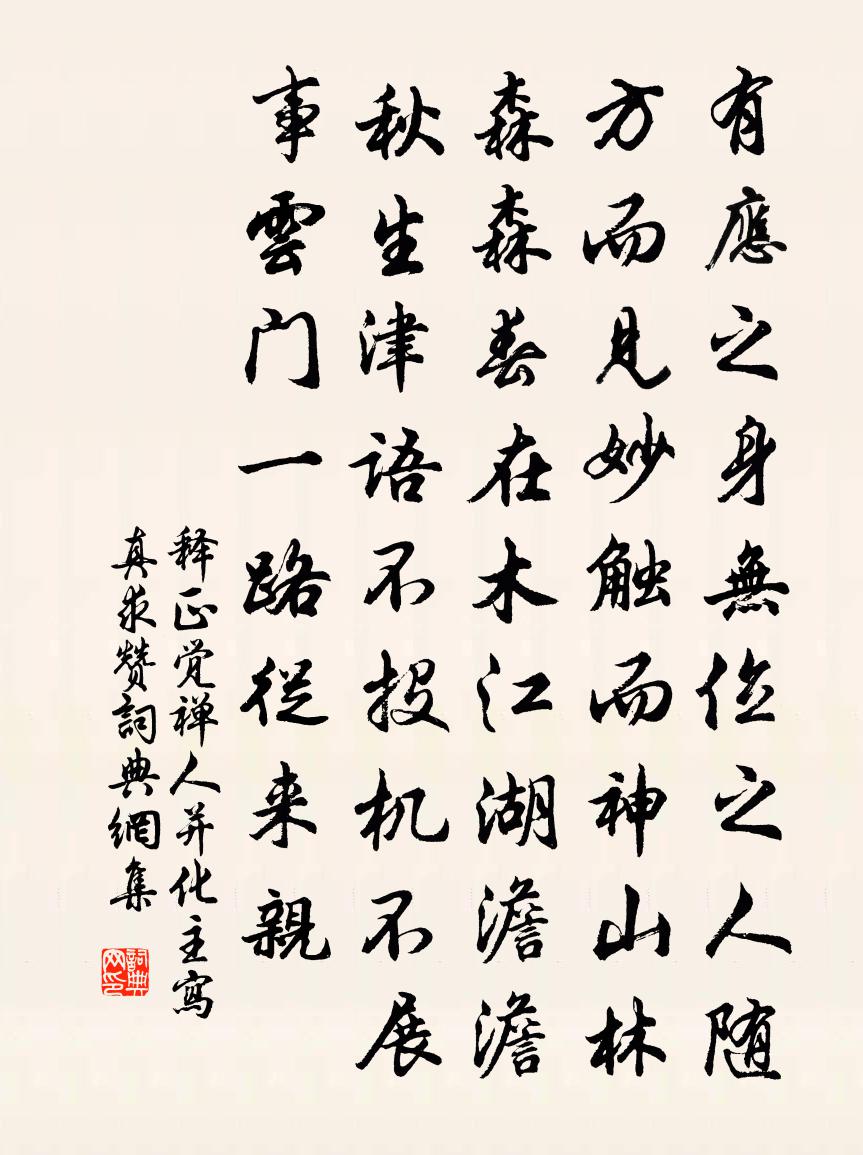 有應之身無位之人随
方而見妙触而神山林
森森春在木江湖澹澹
秋生津語不投机不展
事雲门一路從来親
释正觉禅人并化主寫
真求赞詞典網集
詞典
网印